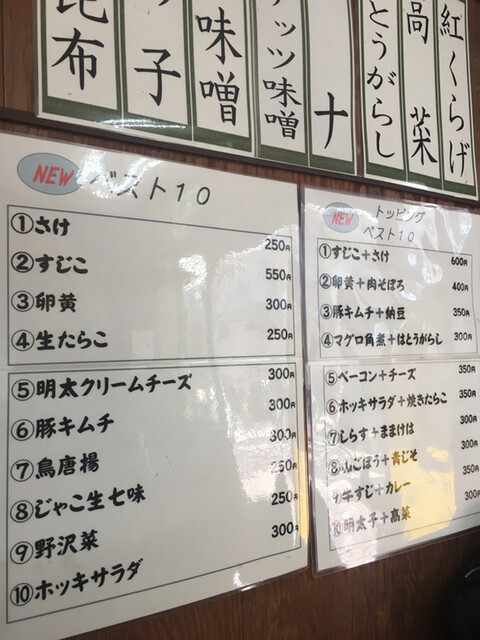 紅くらげ
高菜
とうがらし
ナ
ナッツ味噌
味噌
子
昆布
NEW ベスト10
①さけ 250円
②すじこ 550円
③卵黄 300円
④生たらこ 250円
⑤明太クリームチーズ 300円
⑥豚キムチ 300円
⑦鳥唐揚 300円
⑧じゃこ生七味 250円
⑨野沢菜 250円
⑩ホッキサラダ 300円
NEW トッピング
ベスト10
①すじこ+さけ 600円
②卵黄+肉そぼろ 400円
③豚キムチ+納豆 350円
④マグロ角煮+はとうがらし 300円
⑤ベーコン+チーズ 350円
⑥ホッキサラダ+焼きたらこ 350円
⑦しらす+ままけは 300円
⑧山ごぼう+青じそ 300円
⑨牛すじ+カレー 350円
⑩明太子+高菜 300円